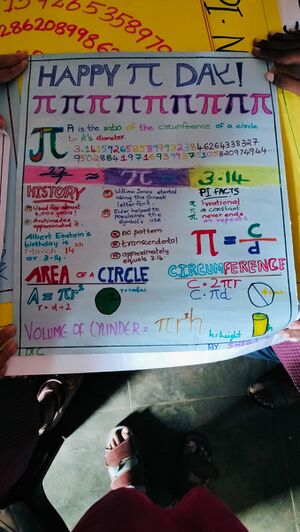 286208998
HAPPY π DAY!
π π π π π π π π
π Pi is the ratio of the circumference of a circle
to it's diameter.
3.141592653589793238464264338327
950288419716939937510582097494...
22/7 ≈ π 3.14
HISTORY
Used for almost
4,000 years!
Archimedes
approximated it.
Albert Einstein's
birthday is
March 14th
or 3.14!
William Jones started
using the Greek
letter for π
Euler helped to
popularise the
symbol π
no pattern
transcendental
approximately
equals 3.14
PI FACTS
π irrational
π a constant
π never ends
or repeats
π = c/d
AREA OF A CIRCLE
A = πr²
r = d÷2
r = radius
CIRCUMFERENCE
C = 2πr
C = πd
VOLUME OF CYLINDER = πr²h
h=height
IX C
BY: